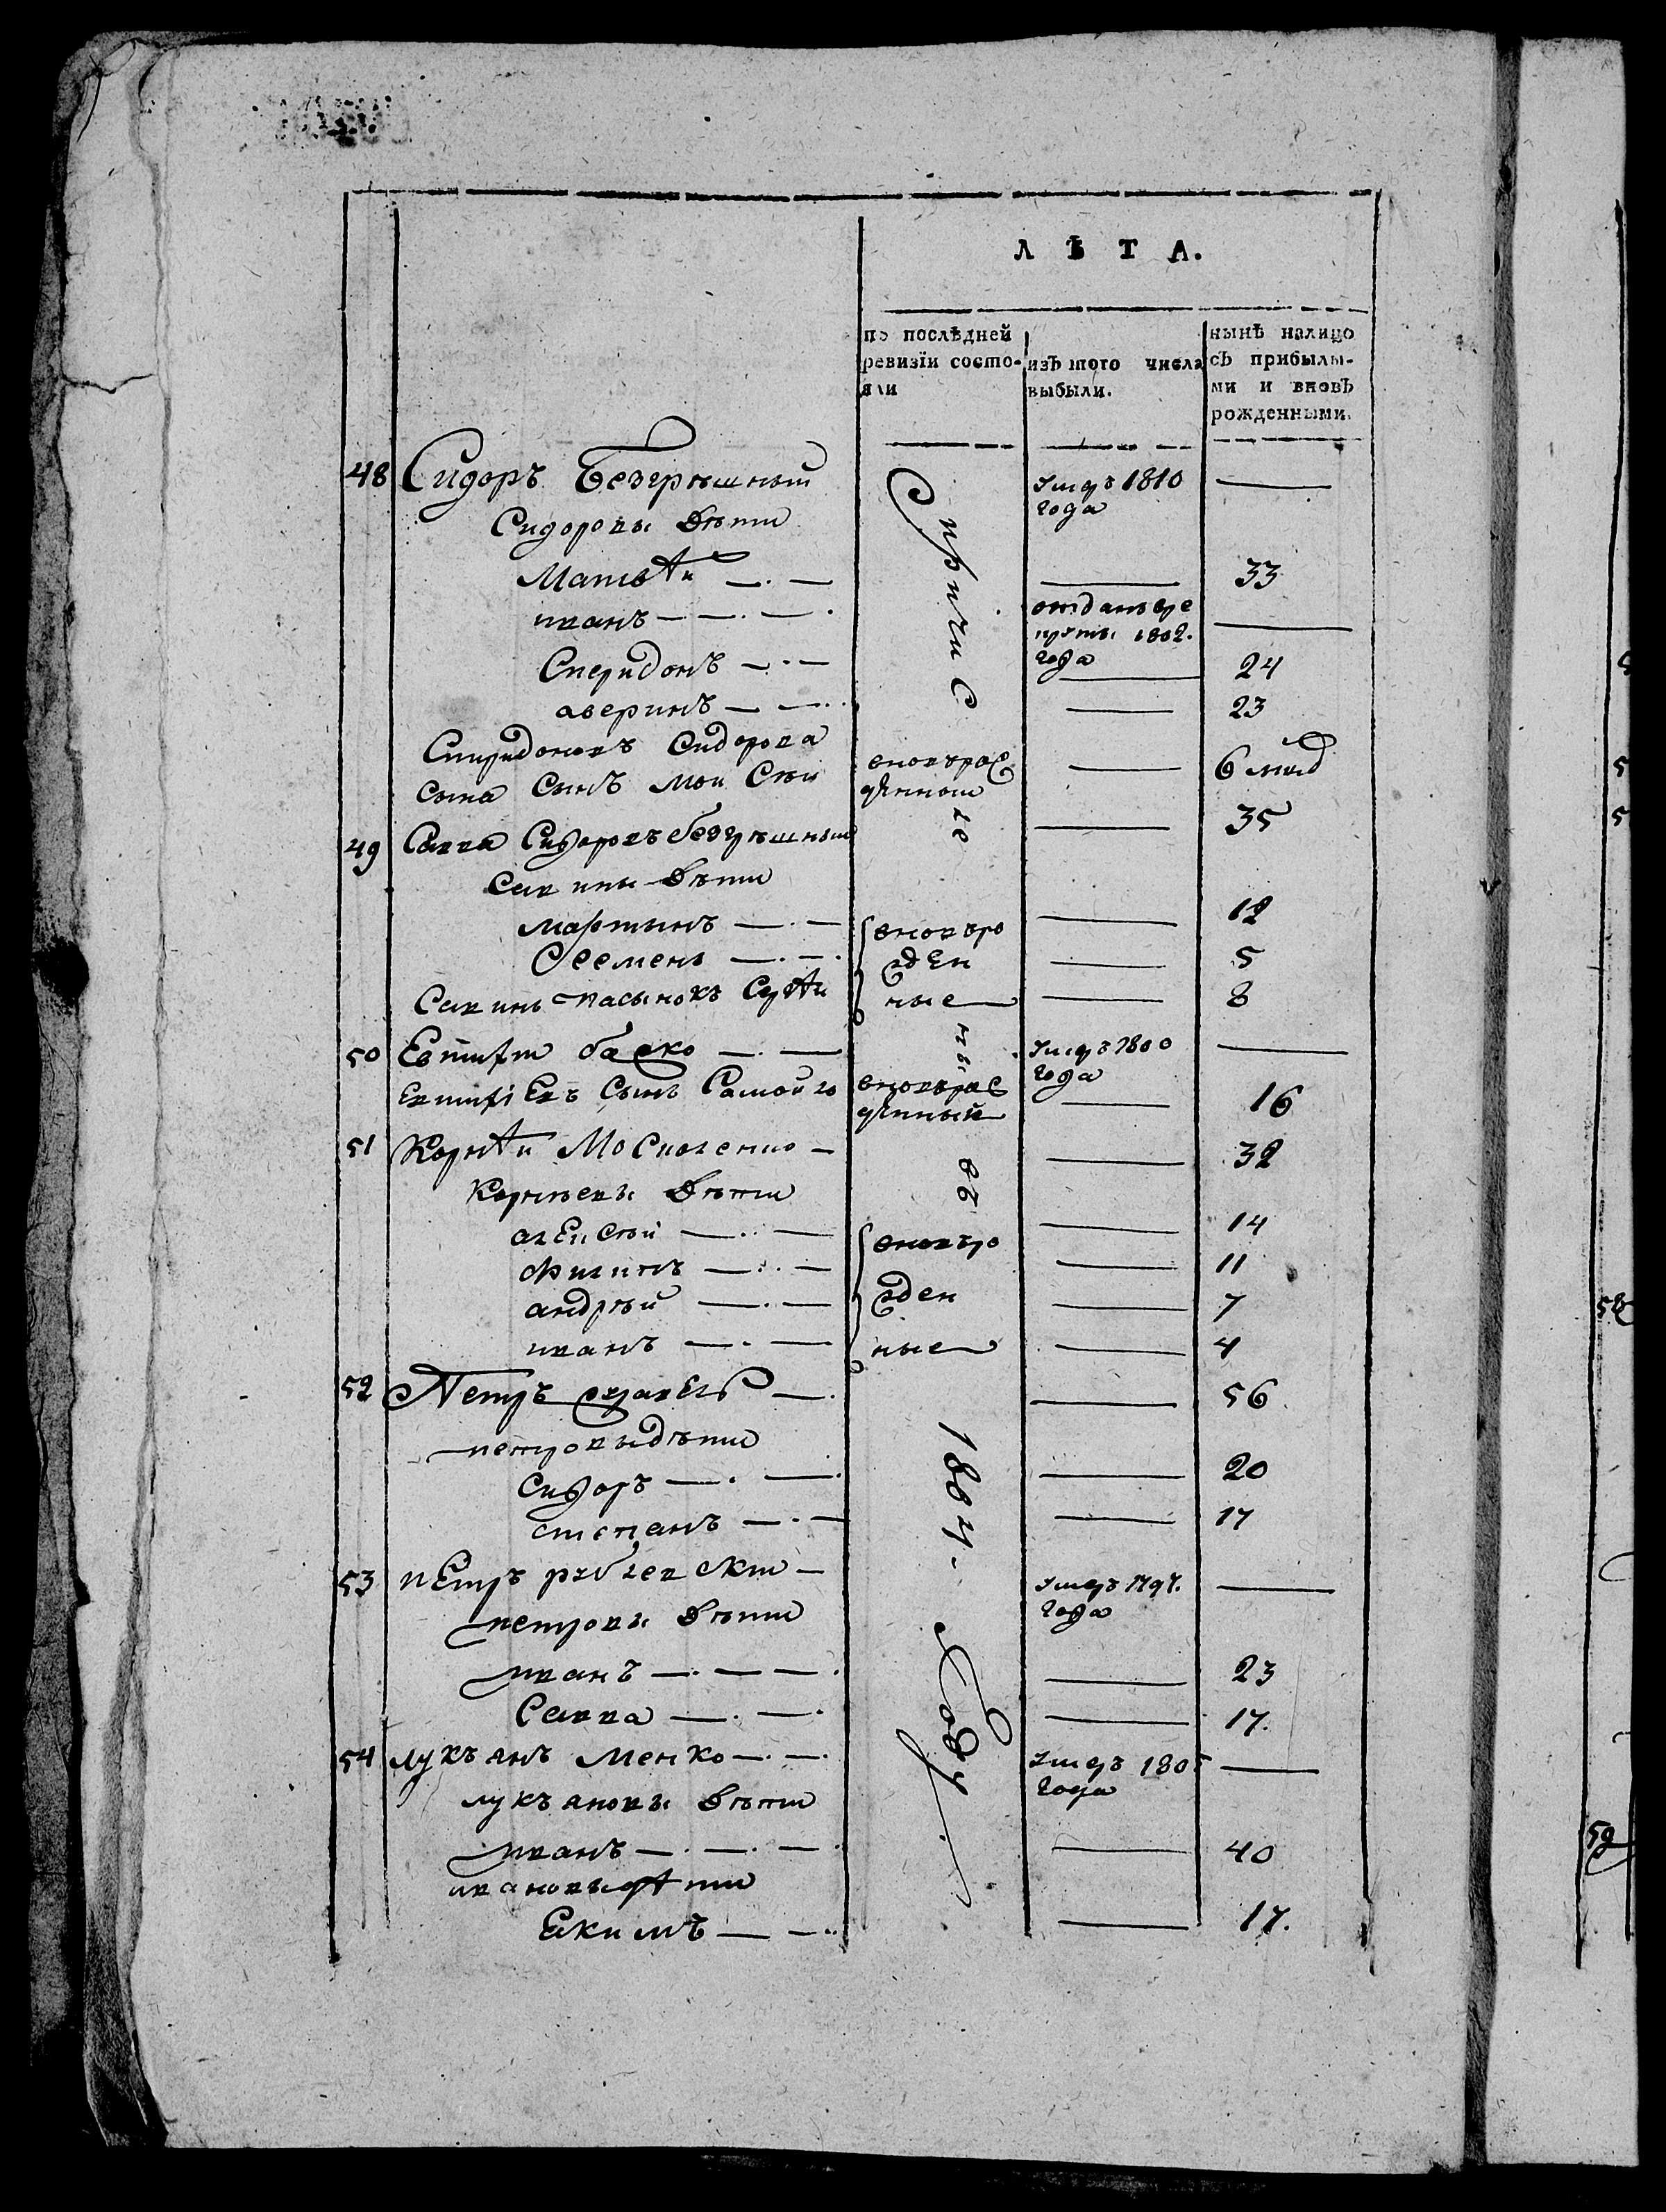 ЛѢТА.
по послѣдней ревизїи состояли
изъ того числа выбыли.
нынѣ налицо съ прибылыми и вновь рожденными.
48 Сидоръ Безгрѣшный умеръ 1810 года —
Сидоровы дѣти
Матвѣй — 33
иванъ отданъ въ рекруты 1802. года —
Спиридонъ — 24
аверинъ — 23
Спиридоновъ Сидорова
сына сынъ Моисѣй вновьрожденный — 6 мѣд
49 Савва Сидоровъ безгрѣшный — 35
Савины дѣти
мартынъ — 12
Семенъ вновьрожденные — 5
Савинъ пасынокъ Сергѣй — 8
50 Евтифей баско умеръ 1800 года —
Евтифіевъ Сынъ Самойло вновьрожденный — 16
51 Корнѣй — 32
Корнѣевы дѣти
алексѣй — 14
Филипъ вновьрожденные — 11
андрѣй — 7
иванъ — 4
52 Петръ — 56
петровы дѣти
Сидоръ — 20
степанъ — 17
53 петръ умеръ 1797. года —
петровы дѣти
иванъ — 23
Савва — 17.
54 лукъянъ Менко умеръ 1805 года —
лукъяновы дѣти
иванъ — 40
ивановы дѣти
Екимъ — 17.
1804. году